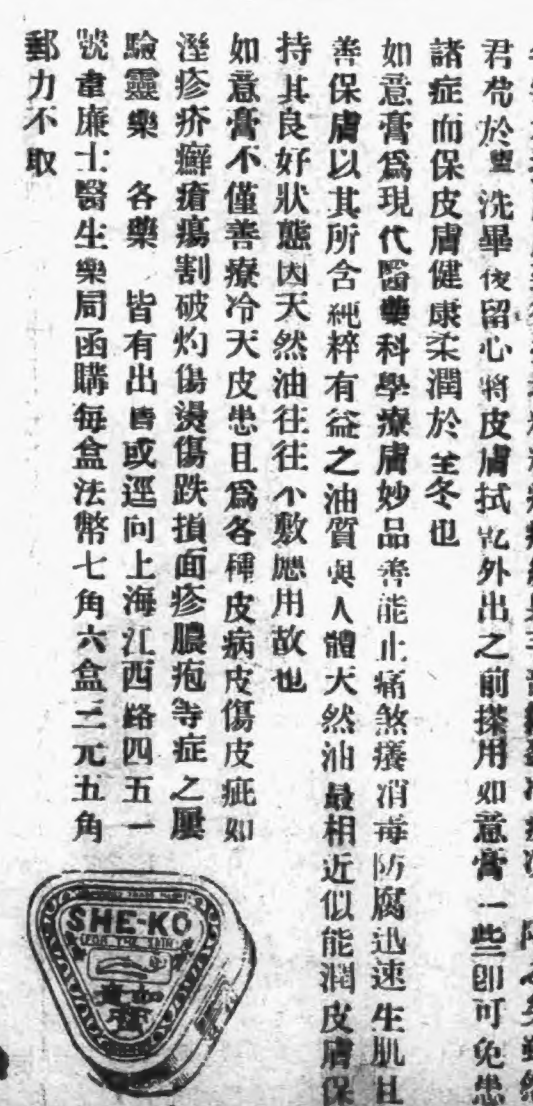 君苟於盥洗畢後留心將皮膚拭乾外出之前搽用如意膏一些卽可免患
諸症而保皮膚健康柔潤於全冬也
如意膏爲現代醫藥科學療膚妙品善能止痛煞癢消毒防腐迅速生肌且
善保膚以其所含純粹有益之油質與人體天然油最相近似能潤皮膚保
持其良好狀態因天然油往往不敷應用故也
如意膏不僅善療冷天皮患且爲各種皮病皮傷皮疵如
溼疹疥癬瘡瘍割破灼傷燙傷跌損面疹膿疱等症之屢
驗靈藥 各藥 皆有出售或逕向上海江西路四五一
號韋廉士醫生藥局函購每盒法幣七角六盒三元五角
郵力不取
SHE-KO
FOR THE SKIN
如意膏